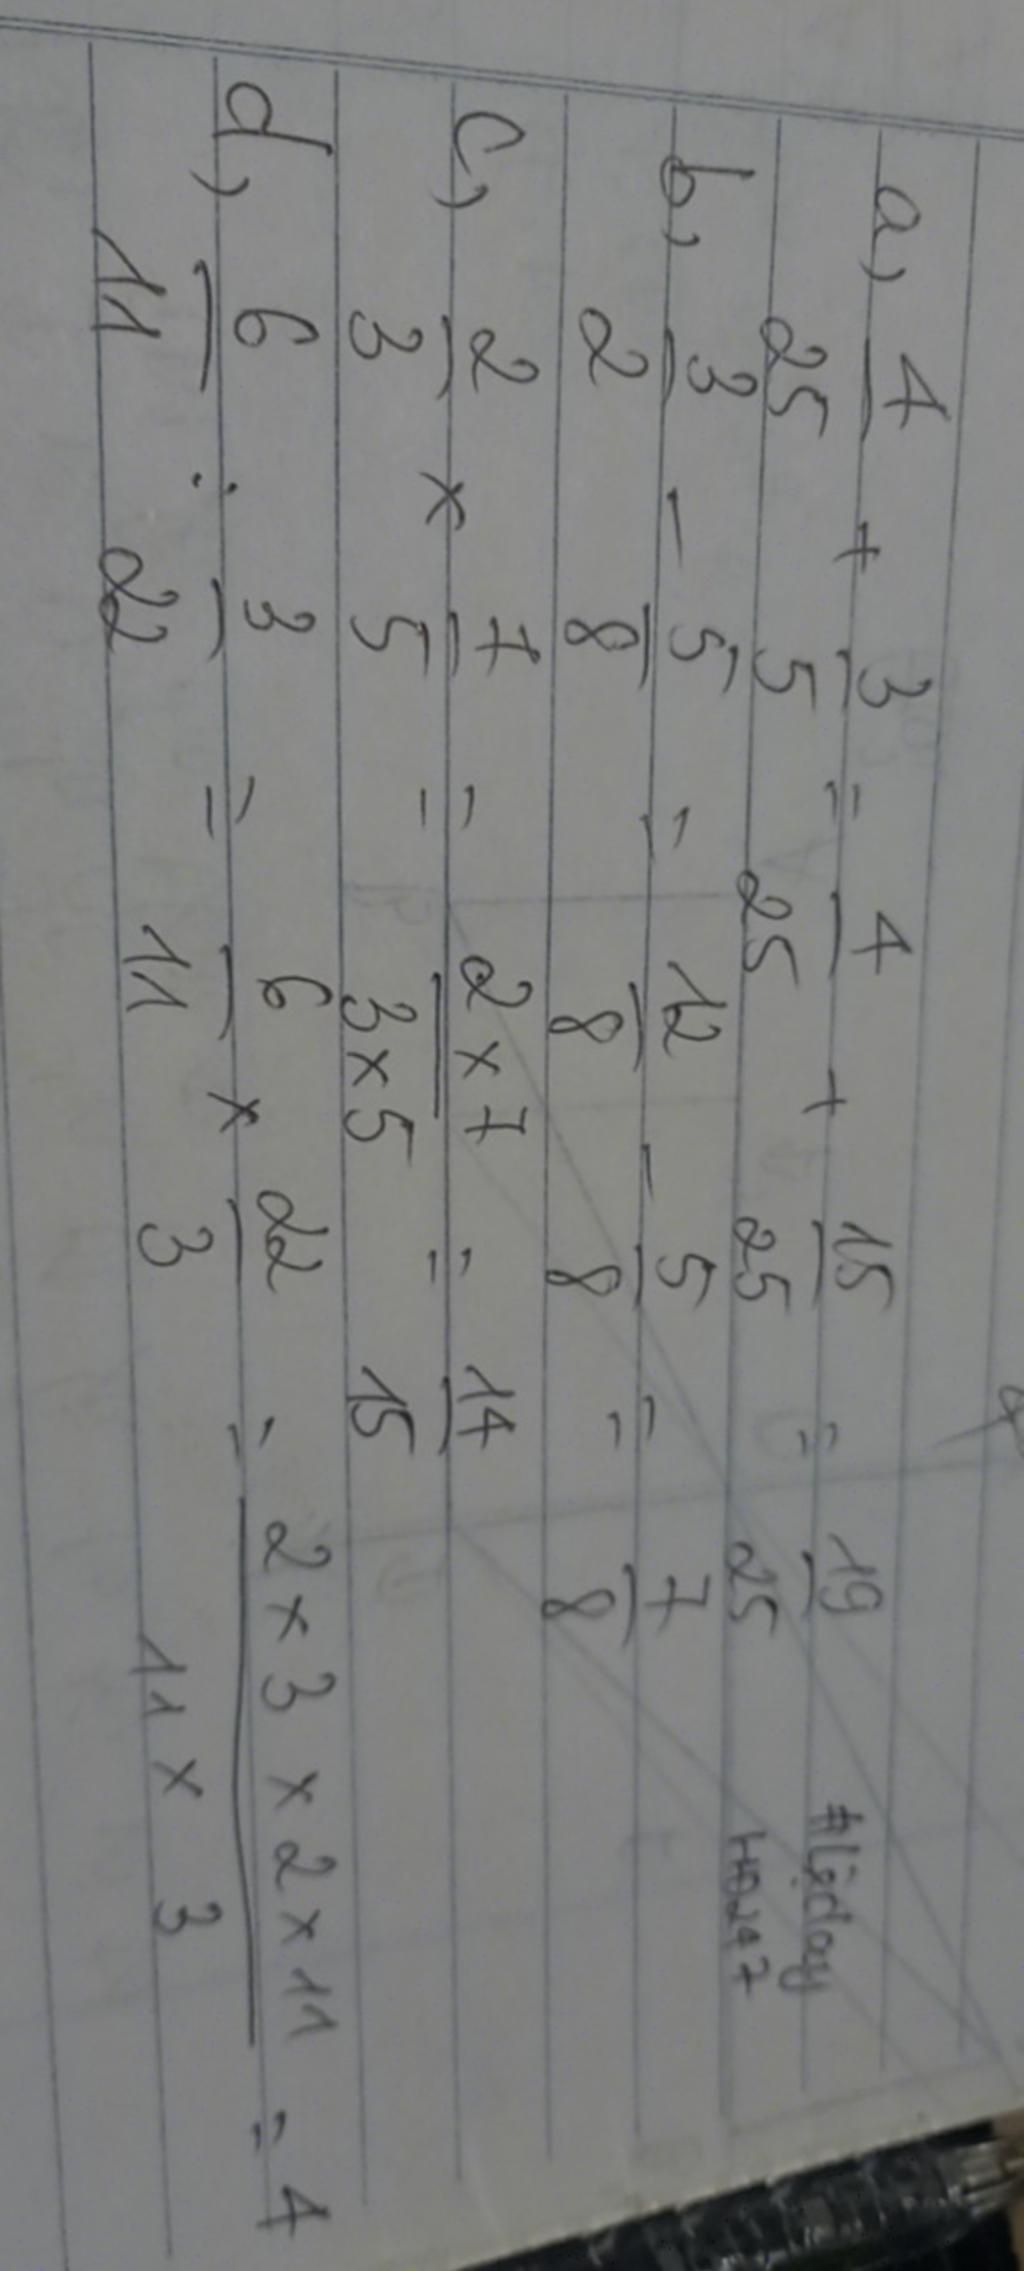 a, 4/25 + 3/5 = 4/25 + 15/25 = 19/25
b, 3/2 - 5/8 = 12/8 - 5/8 = 7/8
c, 2/3 × 7/5 = 2 × 7/3 × 5 = 14/15
d, 6/11 : 3/22 = 6/11 × 22/3 = 2 × 3 × 2 × 11/11 × 3 = 4